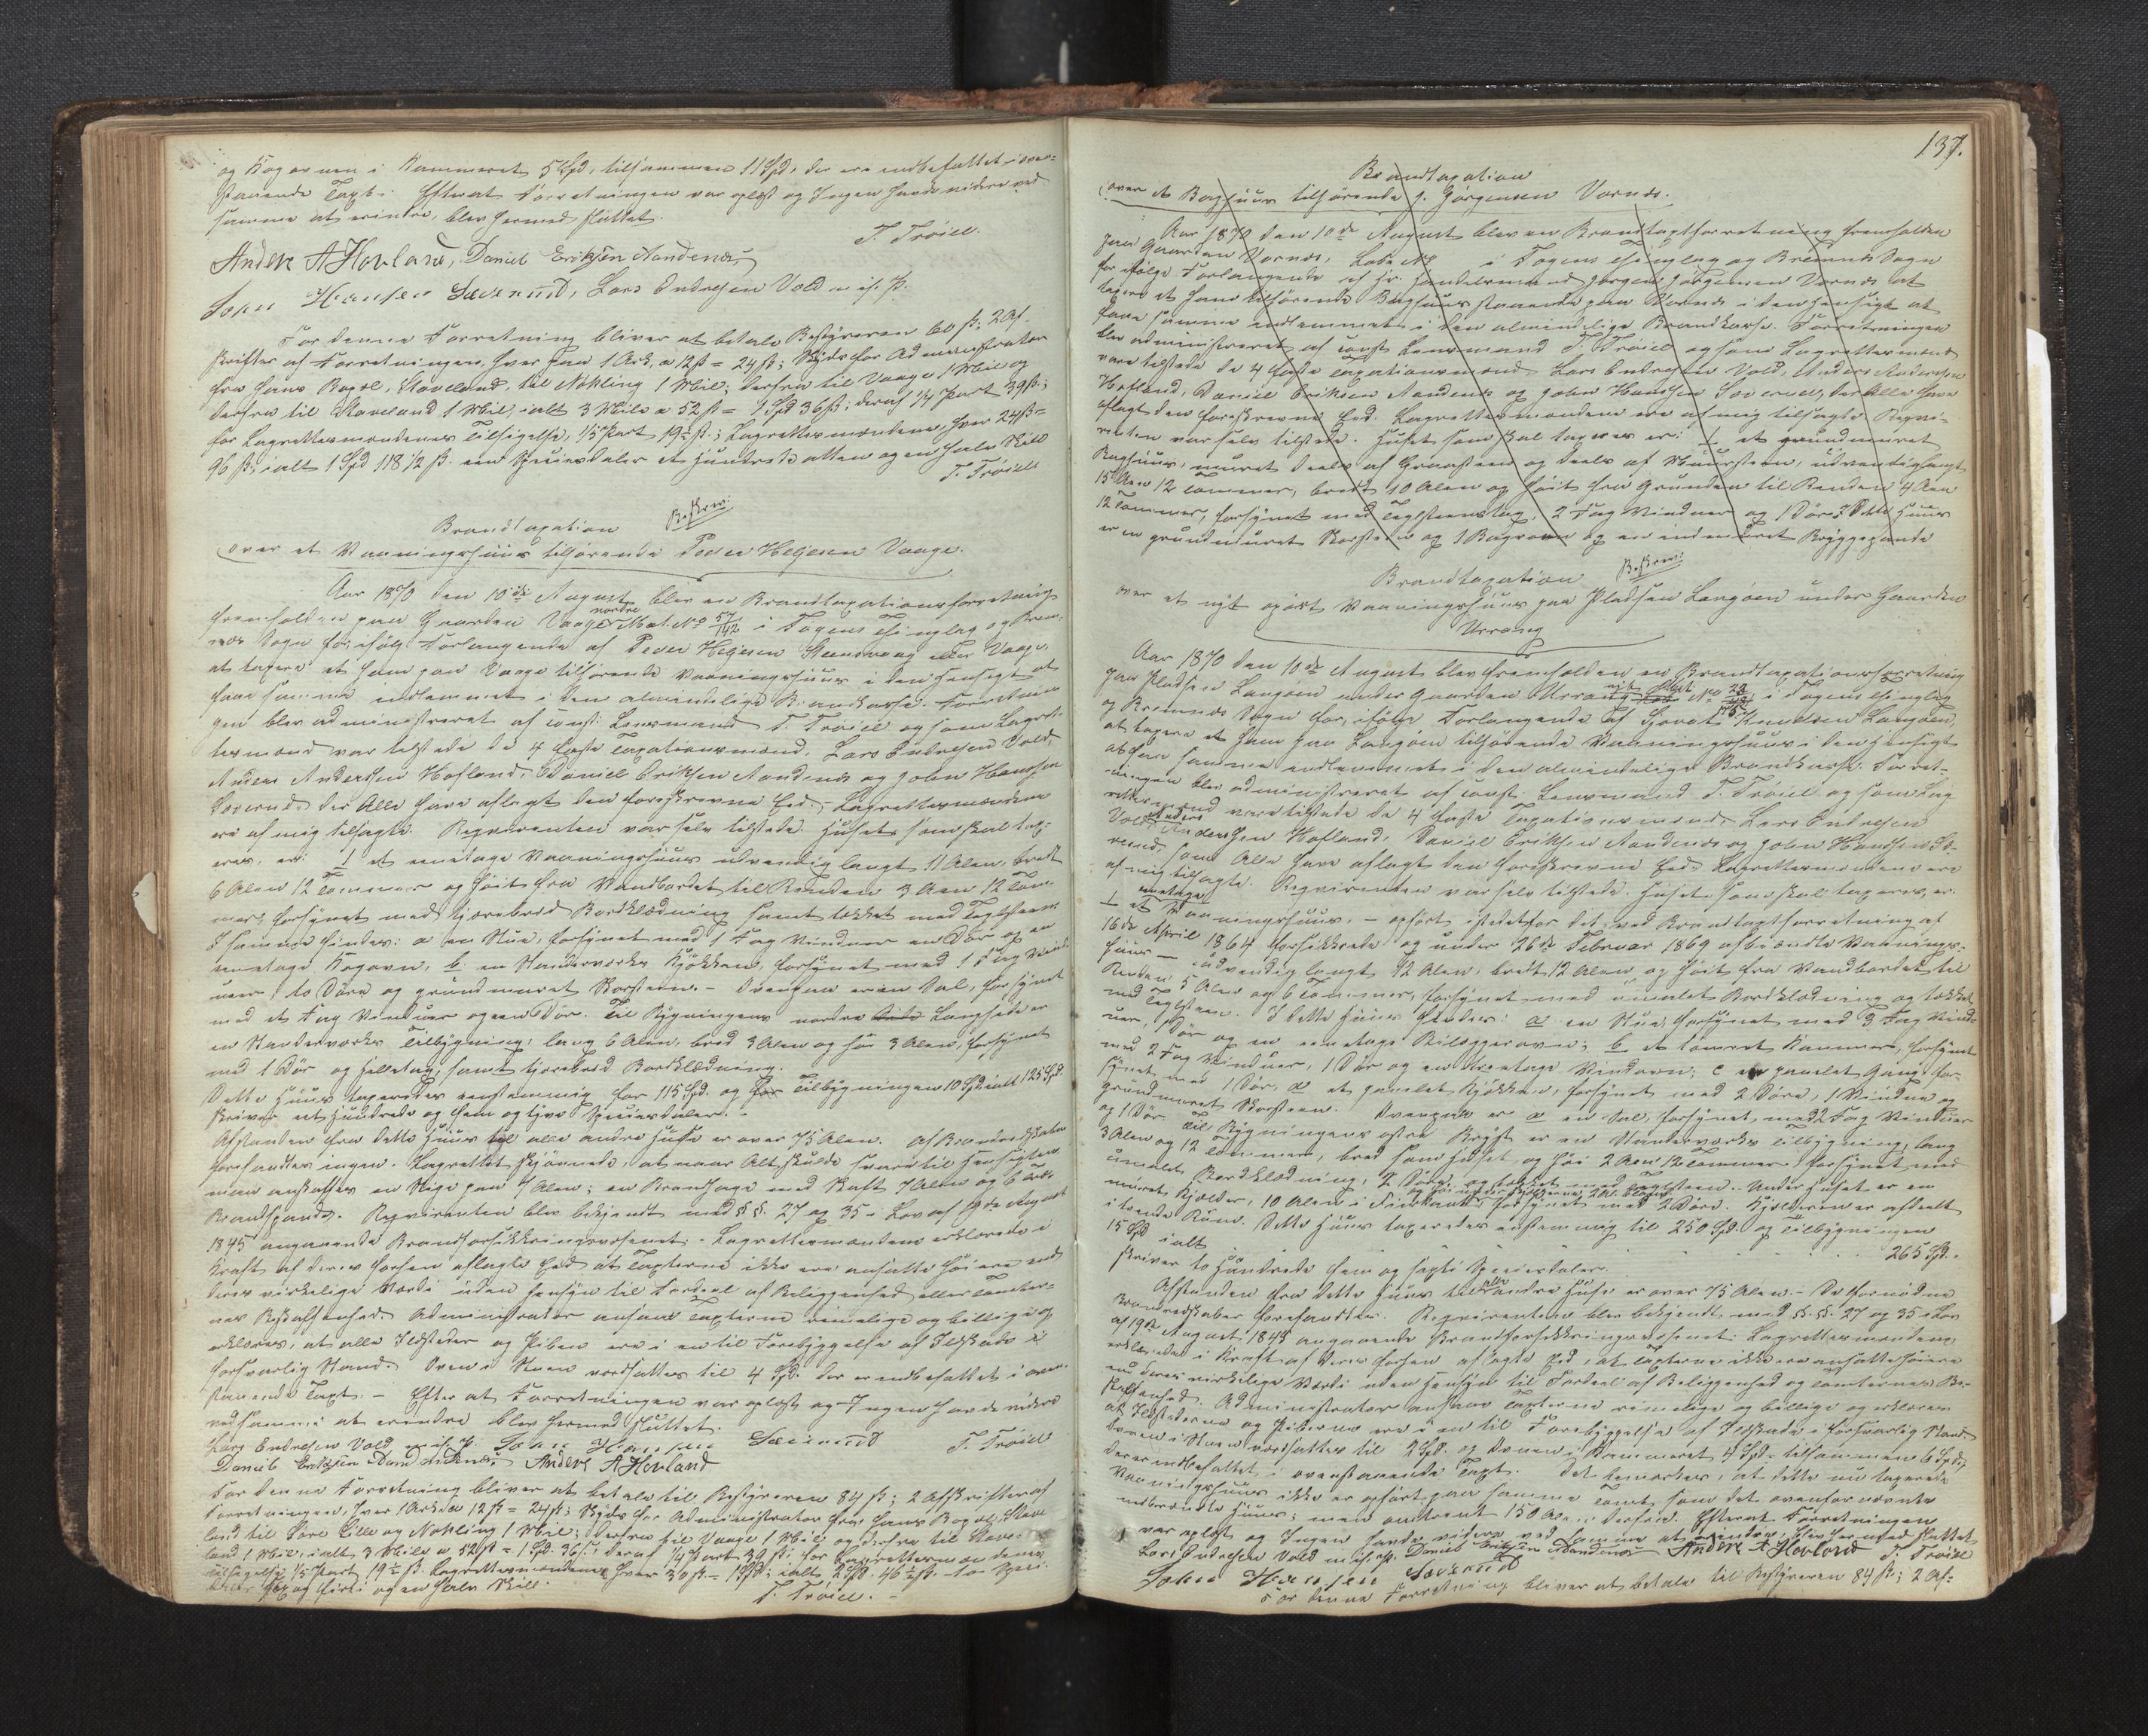 og Kogovnen i Kammeret 5 Spd, tilsammen 11 Spd, der ere indbefattet i oven-
staaende Taxt. Efterat Forretningen var oplæst og Ingen havde videre ved
samme at erindre, blev hermed sluttet.
T. Trøien
Anders A Hovland, Daniel Eriksen Nandenæs
John Hansen Sæverud, Lars Endresen Vold m. ip. P.
For denne Forretning bliver at betale Bestyreren 60 ß; 2 Af-
skrifter af Forretningen, hver paa 1 Ark, a 12 ß = 24 ß; Skyds for Administrator
fra hans Bopæl, Staveland, til Nøkling 1 Miil; derfra til Vaage 1 Miil og
derfra til Staveland 1 Miil, ialt 3 Mile a 52 ß = 1 Spd 36 ß; deraf 1/4 Part 39 ß;
for Lagrettesmændenes Tilsigelse, 1/5 Part 19½ ß; Lagrettesmændene, hver 24 ß =
96 ß; ialt 1 Spd 118 1/2 ß. een Speciedaler et Hundrede atten og en halv Skill
T. Trøien
Beskrev:
Brandtaxation
over et Vaaningshuus tilhørende Peder Helgesen Vaage.
Aar 1870 den 10de August blev en Brandtaxationsforretning
fremholden paa Gaarden Vaage nordre Mat. No 57/142 i Føyens Thinglag og Brem-
næs Sogn for, ifølge Forlangende af Peder Helgesen Steensvaag eller Vaage,
at taxere et ham paa Vaage tilhørende Vaaningshuus i den Hensigt at
faae samme indlemmet i den almindelige Brandkasse. Forretnin-
gen blev administreret af const. Lensmand T. Trøien og som Lagret-
tesmænd var tilstede de 4 faste Taxationsmænd, Lars Endresen Vold,
Anders Andersen Hofland, Daniel Eriksen Nandenæs og John Hansen
Sæverud, der Alle have aflagt den foreskrevne Eed. Lagrettesmændene
ere af mig tilsagte. Reqvirenten var selv tilstede. Huset som skal tax-
eres, er: 1 et eenetage Vaaningshuus udvendig langt 11 Alen, bredt
6 Alen 12 Tommer og høit fra Vandbordet til Renden 3 Alen 12 Tom-
mer, forsynet med tjærebred Bordklædning samt tækket med Taglsteen.
I samme findes: a en Stue, forsynet med 1 Fag Vinduer en Dør og en
eenetage Kogovn, b. en Standerværks Kjøkken, forsynet med 1 Fag Vind-
uer, to Døre og grundmuret Skorsteen. - Ovenpaa er en Sal, forsynet
med et Fag Vinduer og een Dør. Til Bygningens nordre Side Langside er
en Standerværks Tilbygning, lang 6 Alen, bred 3 Alen og høi 3 Alen, forsynet
med 1 Dør og Helletag, samt tjærebred Bordklædning.
Dette Huus taxeredes eenstemmig for 115 Spd. og for Tilbygningen 10 Spd. ialt 125 Spd.
skriver eet Hundrede og fem og tyve Speciedaler.
Afstanden fra dette Huus til alle andre Huse er over 75 Alen. Af Brandredskaber
forefandtes ingen. Lagrettet skjønnede, at naar Alt skulde svare til Hensigten
maa anskaffes en Stige paa 9 Alen; en Brandhage med Skaft 7 Alen og 6
Brandspande. Reqvirenten blev bekjendt med §§. 27 og 35 i Lov af 19de August
1845 angaaende Brandforsikkringsvæsenet. Lagrettesmændene erklærede i
Kraft af deres forhen aflagte Eed at Taxterne ikke ere ansatte høiere end
deres virkelige Værdi uden Hensyn til Fordeel af Beliggenhed eller Tomter-
nes Beskaffenhed. Administrator ansaae Taxterne rimelige og billige og
erklærer, at alle Ildsteder og Piben ere i en til Forebyggelse af Ildskade i
forsvarlig Stand. Ovnen i Stuen værdsattes til 4 Spd. der er indbefattet i oven-
staaende Taxt. - Efter at Forretningen var oplæst og Ingen havde videre
ved samme at erindre blev hermed sluttet.
Lars Endresen Vold m. ip. P. John Hansen Sæverud T. Trøien
Daniel Eriksen Nandenæs, Anders A Hovland
For denne Forretning bliver at betale til Bestyreren 84 ß; 2 Afskrifter af
Forretningen, hver 1 Ark a 12 ß = 24 ß; Skyds for Administrator fra hans Bopæl, Stave-
land til Nøkling 1 Miil; derfra til Vaage 1 Miil og derfra til Stave-
land 1 Miil, ialt 3 Mile a 52 ß = 1 Spd. 36 ß, deraf 1/4 Part 39 ß; for Lagrettesmændenes
Tilsigelse 1/5 Part 19½ ß. Lagrettesmændene hver 30 ß = 1 Spd; ialt 2 Spd. 46½ ß. to Speci-
daler sex og firti og en halv Skill.
T. Trøien.
137.
Brandtaxation
over et Baghuus tilhørende J. Jørgensen Vornæs.
Aar 1870 den 10de August blev en Brandtaxtforretning fremholden
paa Gaarden Vornæs, Løbe No i Føyens Thinglag og Bremnæs Sogn
for ifølge Forlangende af Hr. Handelsmand Jørgen Jørgensen Vornæs at
taxere et ham tilhørende Baghuus staaende paa Vornæs i den Hensigt at
faae samme indlemmet i den almindelige Brandkasse. Forretningen
blev administreret af const. Lensmand T. Trøien og som Lagrettesmænd
vare tilstede de 4 faste Taxationsmænd Lars Endresen Vold, Anders Andersen
Hofland, Daniel Eriksen Nandenæs og John Hansen Sæverud, der Alle have
aflagt den foreskrevne Eed. Lagrettesmændene ere af mig tilsagte. Reqvi-
renten var selv tilstede. Huset som skal taxeres er: 1 et grundmuret
Baghuus, muret deels af Graasteen og deels af Muursteen, udvendig langt
15 Alen 12 Tommer, bredt 10 Alen og høit fra Grunden til Renden 4 Alen
12 Tommer, forsynet med Teglsteenstag, 2 Fag Vinduer og 1 Dør. I dette Huus
er en grundmuret Skorsteen og 1 Bagerovn og en indmuret Bryggepande
Beskrev:
Brandtaxation
over et nyt opført Vaaningshuus paa Pladsen Langøen under Gaarden
Urrang
Aar 1870 den 10de August blev fremholden en Brandtaxationsforretning
paa Pladsen Langøen under Gaarden Urrang nyt Mat. No i Føyens Thinglag
og Bremnæs Sogn for, ifølge Forlangende af Sjovat Knudsen Langøen,
at taxere et ham paa Langøen tilhørende Vaaningshuus i den Hensigt
at faae samme indlemmet i den almindelige Brandkasse. Forret-
ningen blev administreret af const. Lensmand T. Trøien og som Lag-
rettesmænd vare tilstede de 4 faste Taxationsmænd, Lars Endresen
Vold, Anders Andersen Hofland, Daniel Eriksen Nandenæs og John Hansen Sæ-
verud, som Alle have aflagt den foreskrevne Eed. Lagrettesmændene ere
af mig tilsagte. Reqvirenten var selv tilstede. Huset som skal taxeres, er:
1 et eenetage Vaaningshuus, - opført istedetfor det, ved Brandtaxtforretning af
16de April 1864 forsikkrede og under 26de Februar 1869 afbrændte Vaanings-
huus - udvendig langt 12 Alen, bredt 12 Alen og høit fra Vandbordet til
Renden 5 Alen og 6 Tommer, forsynet med umalet Bordklædning og tækket
med Teglsteen. I dette Huus findes: a en Stue, forsynet med 3 Fag Vind-
uer, 1 Dør og en eenetage Bilæggerovn; b et tømret Kammer, forsynet
med 2 Fag Vinduer, 1 Dør og en treetage Vindovn; c en panelet Gang for-
synet med 1 Dør, d et panelet Kjøkken, forsynet med 2 Døre, 1 Vindue og
grundmuret Skorsteen. Ovenpaa er a en Sal, forsynet med 2 Fag Vinduer
og 1 Dør. Til Bygningens østre Bryst er en Standerværks Tilbygning, lang
3 Alen og 12 Tommer, bred som Huset og høi 2 Alen 12 Tommer, forsynet med
umalet Bordklædning, 2 Døre og tækket med Teglsteen. Under Huset er en
muret Kjelder, 10 Alen i Fiirkant, forsynet med 2 Døre. Kjelderen er afdeelt
i tvende Rum. Dette Huus taxeredes enstemmig til 250 Spd. og Tilbygningen
15 Spd ialt . . . . . . 265 Spd.
skriver to Hundrede fem og sexti Speciesdaler.
Afstanden fra dette Huus til alle andre Huse er over 75 Alen. - De fornødne
Brandredskaber forefandtes. Reqvirenten blev bekjendt med §.§. 27 og 35 i Lov
af 19de August 1845 angaaende Brandforsikkringsvæsenet. Lagrettesmændene
erklærede i Kraft af deres forhen aflagte Eed, at Taxterne ikke ere ansatte høiere
end deres virkelige Værdi uden Hensyn til Fordeel af Beliggenhed og Tomternes Be-
skaffenhed. Administrator ansaae Taxterne rimelige og billige og erklærer
at Ildstederne og Piberne ere i en til Forebyggelse af Ildskade i forsvarlig Stand.
Ovnen i Stuen værdsattes til 2 Spd. og Ovnen i Kammeret 4 Spd - tilsammen 6 Spd,
der er indbefattet i ovenstaaende Taxt. Det bemærkes, at dette nu taxerede
Vaaningshuus ikke er opført paa samme Tomt, som det ovenfor nævnte
nedbrændte Huus; men omtrent 150 Alen derfra. Efterat Forretningen
var oplæst og Ingen havde videre ved samme at erindre, blev hermed sluttet
Lars Endresen Vold m. ip. P. Daniel Eriksen Nandenæs Anders A Hovland T. Trøien
John Hansen Sæverud
For denne Forretning bliver at betale til Bestyreren 84 ß; 2 Af-